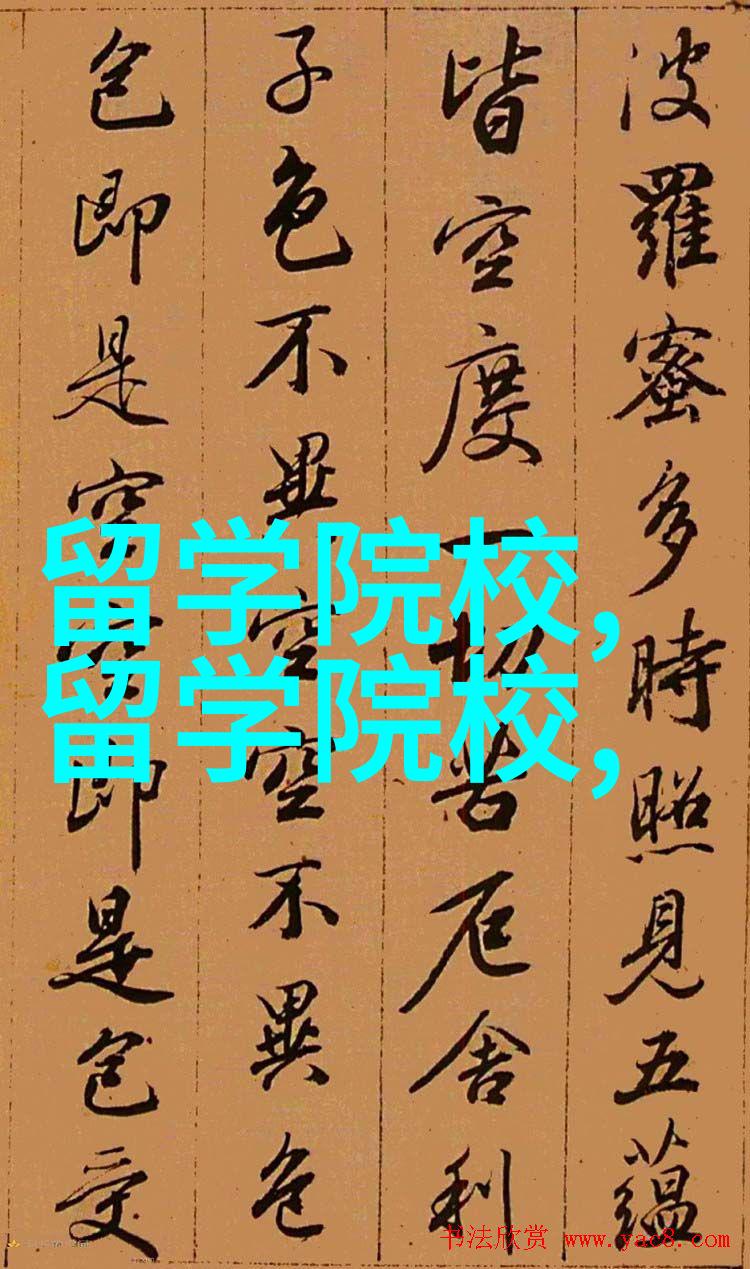 波羅蜜多時照見五蘊
皆空度一切苦厄舍利
子色不異空空不異色
色即是空空即是色受
留学院校,
留学院校,
书法欣赏 www.yac8.com